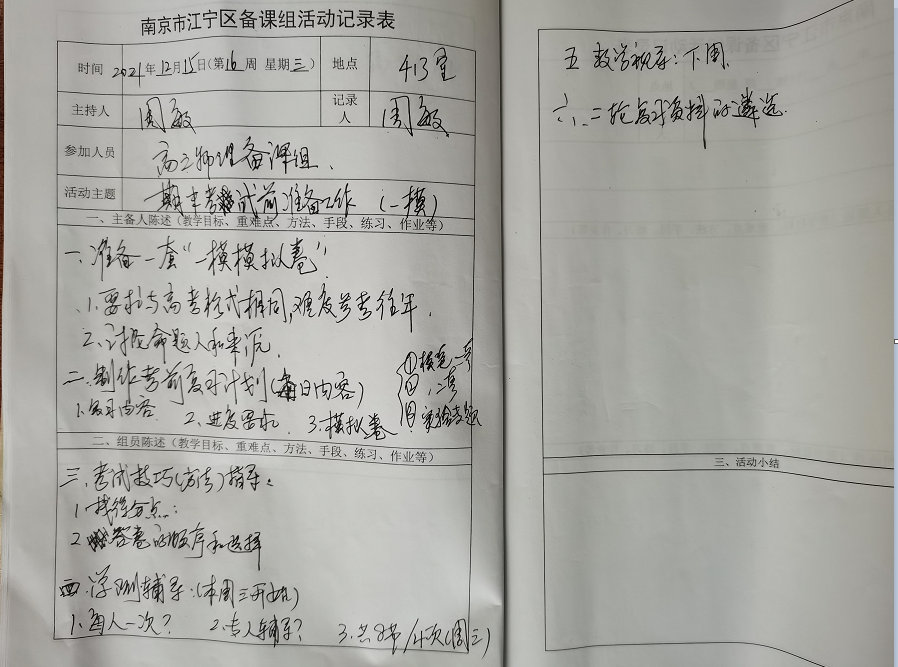 南京市江宁区备课组活动记录表
时间 2021年12月15日(第16周 星期三) 地点 413室
主持人 周敏 记录人 周敏
参加人员 高三物理备课组.
活动主题 期末考试前准备工作 (一模)
一、主备人陈述(教学目标、重难点、方法、手段、练习、作业等)
一、准备一套“一模模拟卷”
1.要求与高考格式相同,难度参考往年.
2.讨论命题人和来源.
二.制作考前复习计划(每日内容)
1.复习内容 2.进度要求. 3.模拟卷
①模卷一号
二号
实验专题
二、组员陈述(教学目标、重难点、方法、手段、练习、作业等)
三.考试技巧(方法)指导:
1.找得分点:
2.答卷的顺序和选择
四.学测辅导:(本周三开始)
1.每人一次? 2.专人辅导? 3.共8节/4次(周三)
五 教学视导:下周.
六、二轮复习资料的遴选.
三、活动小结